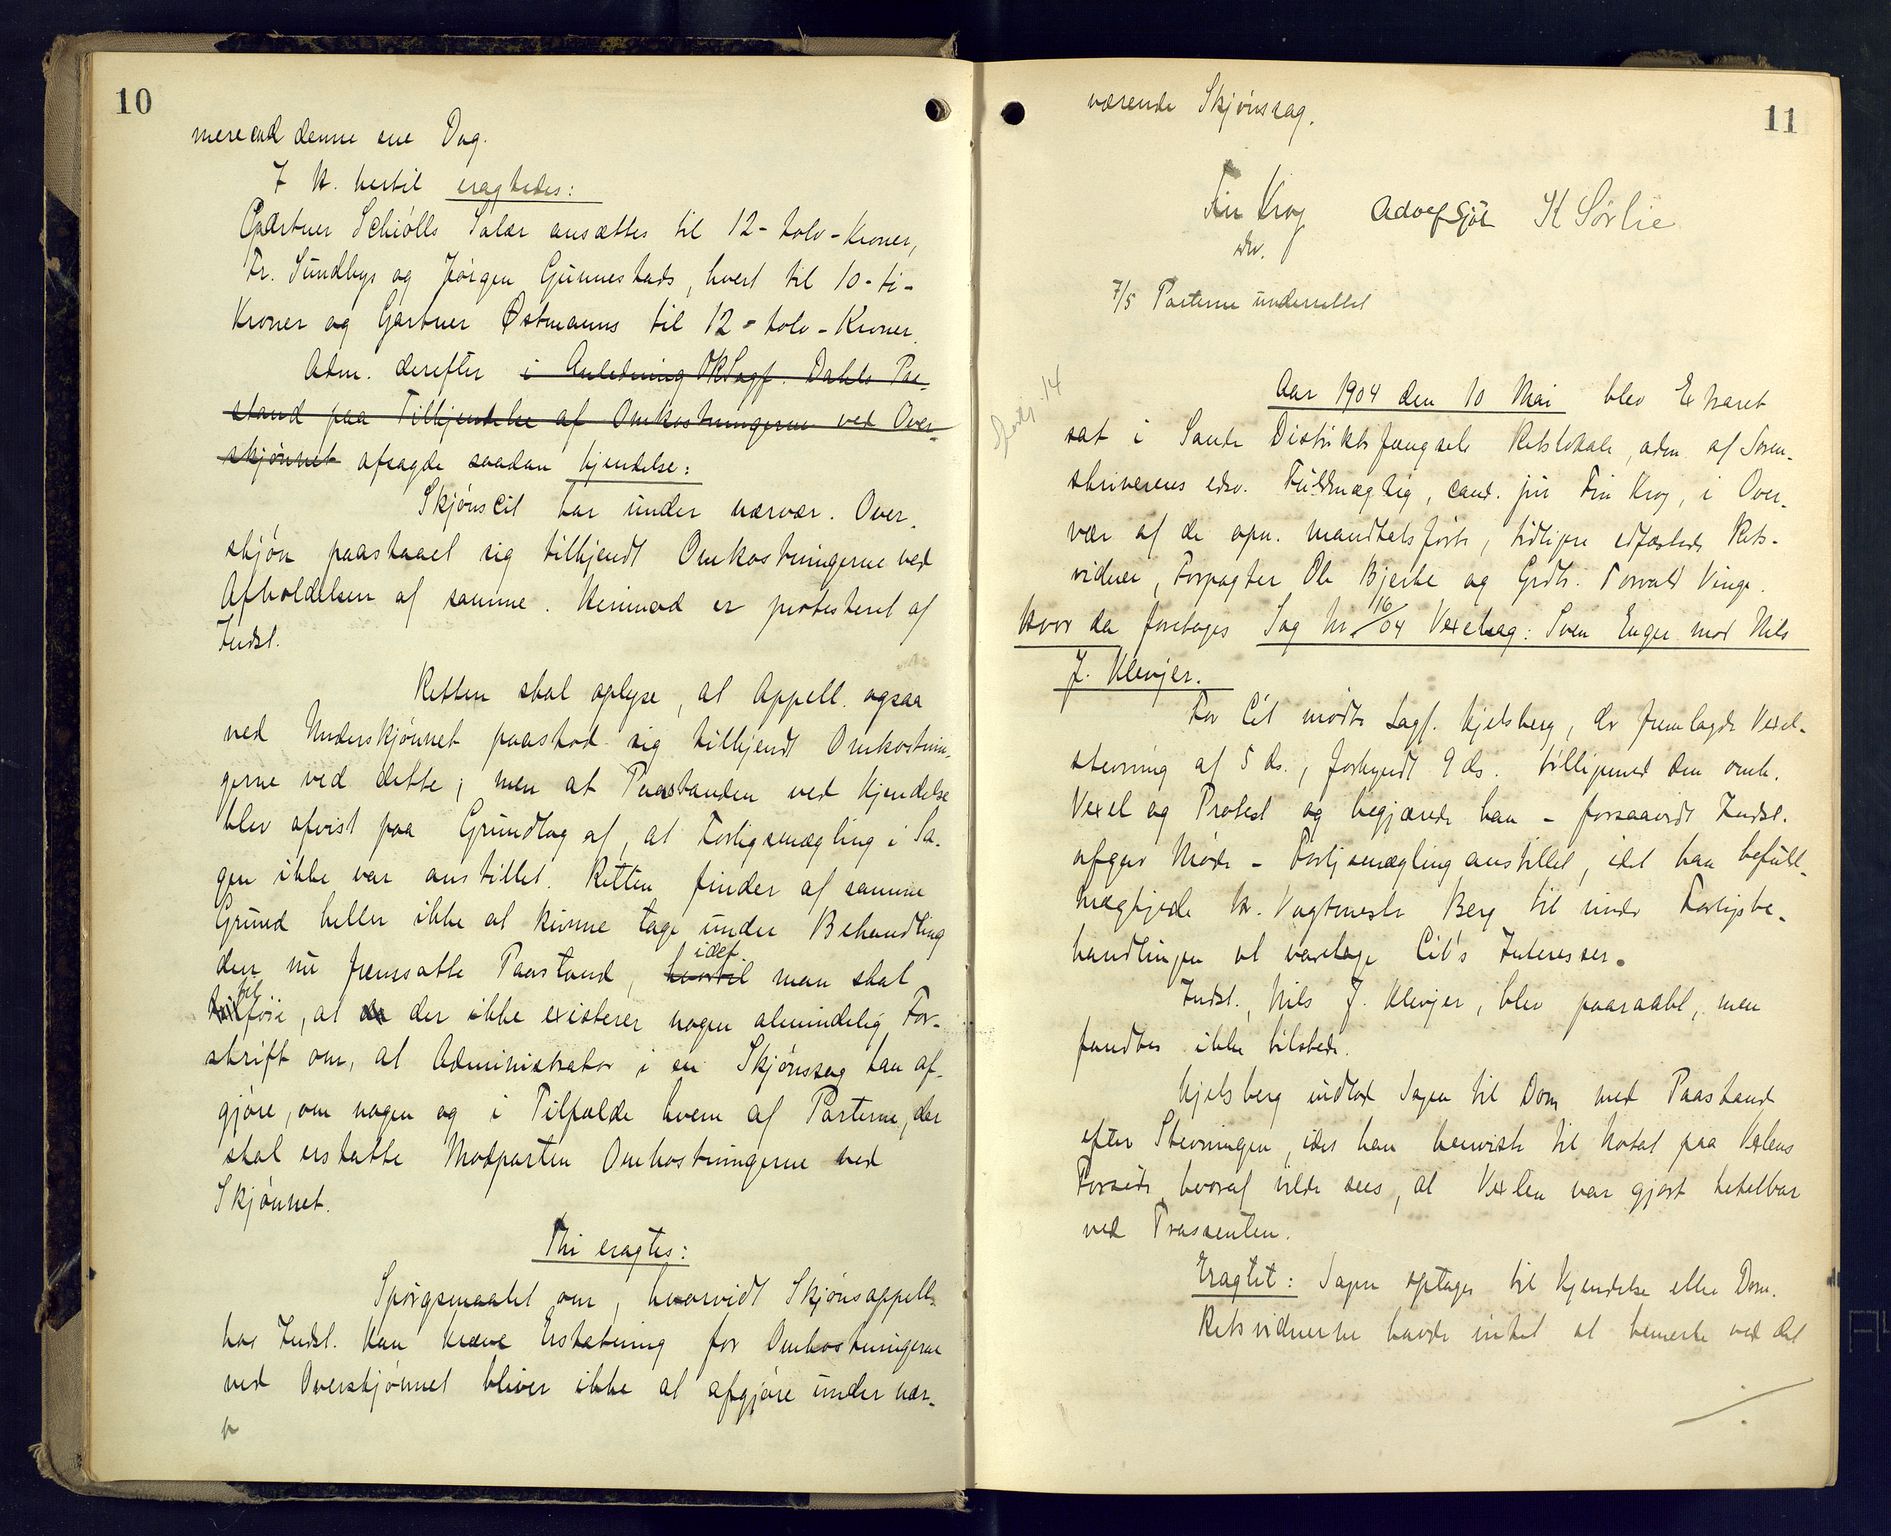 10
mere end denne ene Dag.
I K. hertil eragtedes:
Gartner Schiølls Salær ansættes til 12 - tolv - Kroner,
Fr. Sundbys og Jørgen Gunnestads, hvert til 10 - ti -
Kroner og Gartner Østmanns til 12 - tolv - Kroner.
Adm. derefter i Anledning OKSagf. Dahls Paa-
stand paa Tilkjendelse af Omkostningerne ved Over-
skjønnet afsagde saadan kjendelse:
Skjønscit har under nærvær. Over-
skjøn paastaaet sig tilkjendt Omkostningerne ved
Afholdelsen af samme. Herimod er protesteret af
Indst.
Retten skal oplyse, at Appell. ogsaa
ved Underskjønnet paastod sig tilkjendt Omkostnin-
gerne ved dette, men at Paastanden ved Kjendelse
blev afvist paa Grundlag af, at Forligsmægling i Sa-
gen ikke var anstillet. Retten finder af samme
Grund heller ikke at kunne tage under Behandling
den nu fremsatte Paastand, hvortil idet man skal
tilføie, at der ikke existerer nogen almindelig For-
skrift om, at Administrator i en Skjønssag kan af-
gjøre, om nogen og i Tilfælde hvem af Parterne, der
skal erstatte Modparten Omkostningerne ved
Skjønnet.
Thi eragtes:
Spørgsmaalet om, hvorvidt Skjønsappell.
hos Indst. kan kræve Erstatning for Omkostningerne
ved Overskjønnet bliver ikke at afgjøre under nær-
11
værende Skjønssag.
Fin Krog Adolf Sjøl K Sørlie
edsv.
7/5 Parterne underrettet
Aar 1904 den 10 Mai blev Extraret
sat i Sande Distriktsfængsels Retslokale, adm. af Soren-
skriverens edsv. Fuldmægtig, cand. jur Fin Krog, i Over-
vær af de opn. mandtalsførte, tidligere edfæstede Rets-
vidner, Forpagter Ole Bjerke og Grdbr. Torvald Vinge.
Hvor da foretoges Sag Nr. 16/04 Vexelsag: Sven Enger mod Nils
J. Klevjer.
For Cit mødte Sagf. Kjelsberg, der fremlagde Vexel-
stevning af 5 ds., forkyndt 9 ds. tilligemed den omh.
Vexel og Protest og begjærede han - forsaavidt Indst.
afgav Møde - Forligsmægling anstillet, idet han befuld-
mægtigede Hr. Vagtmester Berg til under Forligsbe-
handlingen at varetage Cit's Interesser.
Indst., Nils J. Klevjer, blev paaraabt, men
fandtes ikke tilstede.
Kjelsberg indlod Sagen til Dom med Paastand
efter Stevningen, idet han henviste til Notat paa Vexlens
Forside, hvoraf vilde sees, at Vexlen var gjort betalbar
ved Trassenten.
Eragtet: Sagen optages til Kjendelse eller Dom.
Retsvidnerne havde intet at bemerke ved det